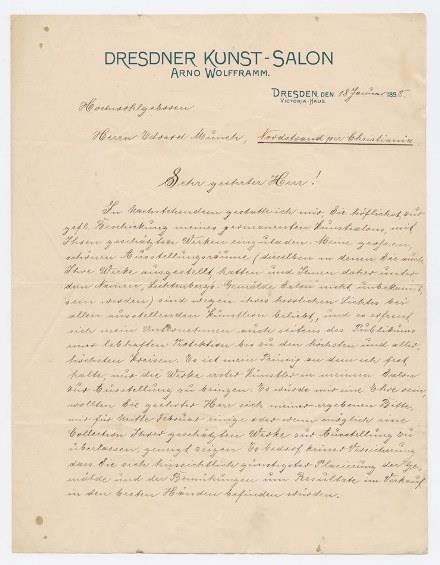 DRESDNER KUNST-SALON
ARNO WOLFFRAMM.
DRESDEN, DEN 18 Januar 1898.
VICTORIA-HAUS.
Hochwohlgeboren
Herrn Edvard Munch, Nordstrand per Christiania
Sehr geehrter Herr!
In Nachstehendem gestatte ich mir, Sie höflichst, zur
gefl. Beschickung meines permanenten Kunstsalons, mit
Ihren geschätzten Werken einzuladen. Meine grossen,
schönen Ausstellungsräume (dieselben in denen Sie auch
Ihre Werke ausgestellt hatten und Ihnen daher unter
dem Namen, Lichtenbergs Gemälde Salon nicht unbekannt
sein werden) sind wegen ihres herrlichen Lichtes bei
allen ausstellenden Künstlern beliebt, und es erfreut
sich mein Unternehmen auch seitens des Publikums
einer lebhaften Protektion bis zu den höchsten und aller-
höchsten Kreisen. Es ist mein Prinzip an dem ich fest
halte, nur die Werke erster Künstler in meinem Salon
zur Ausstellung zu bringen. Es würde mir eine Ehre sein,
wollten Sie geehrter Herr sich meiner ergebenen Bitte,
mir für Mitte Februar einige oder wenn möglich eine
Collection Ihrer geschätzten Werke zur Ausstellung zu
überlassen, geneigt zeigen. Es bedarf keiner Versicherung
dass Sie sich hinsichtlich günstigster Placierung der Ge-
mälde und der Bemühungen um Resultate im Verkauf
in den besten Händen befinden würden.